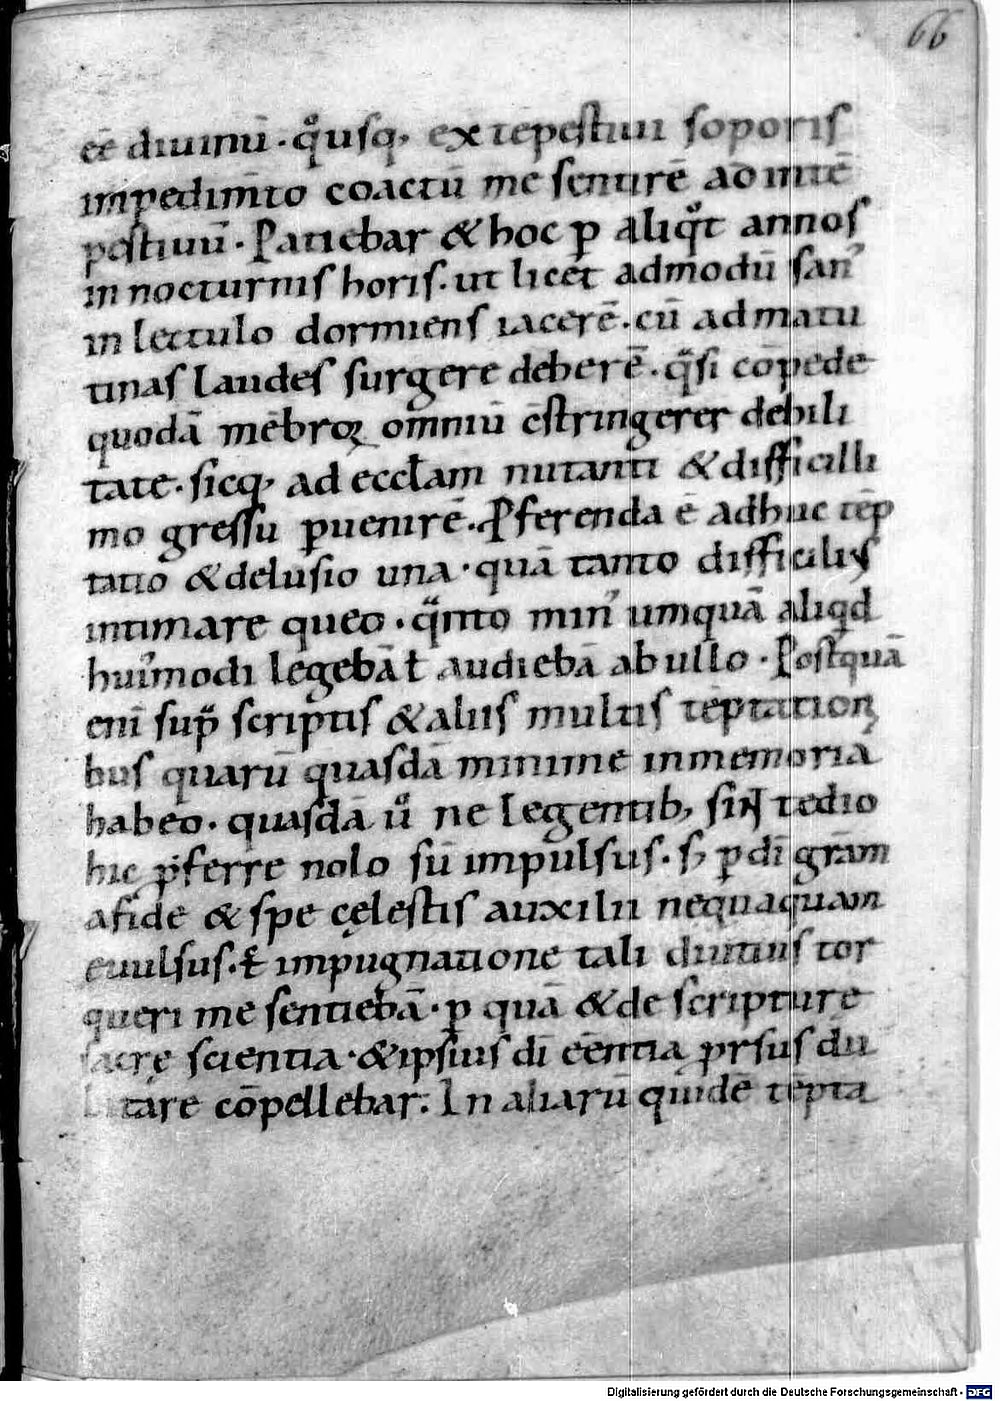 66
eē diuinū · qͦusq; ex tēpestiui soporis
impedim̄to coactū me sentirē ad intē
pestiuū · Patiebar & hoc ꝑ aliqͦt annos
in nocturnis horis · ut licet admodū san᾿
in lectulo dormiens iacerē · cū ad matu
tinas laudes surgere deberē · qͣsi cōpede
quodā mēbroꝝ omniū c̄stringerer debili
tate · sicq; ad eccłam nutanti & difficilli
mo gressu ꝑuenirē · Ꝓferenda ē adhuc tēp
tatio & delusio una · quā tanto difficiliꝰ
intimare queo · qͣnto min᾿ umquā aliqd
hui᾿modi legebā ł audiebā ab ullo · Postquā
eni᷒ sup̄ scriptis & aliis multis tēptation
bus quarū quasdā minime in memoria
habeo · quasdā uͦ ne legentib; sin᷒ tedio
hic p̄ferre nolo sū impulsus · s; ꝑ dī grām
a fide & spe cęlestis auxilii nequaquam
euulsus · ł impugnatione tali diutius tor
queri me sentiebā · ꝑ quā & de scripturę
sacrę scientia · & ipsius dī eēntia ꝓrsus du
bitare cōpellebar. In aliarū quidē tēpta
Digitalisierung gefördert durch die Deutsche Forschungsgemeinschaft - DFG